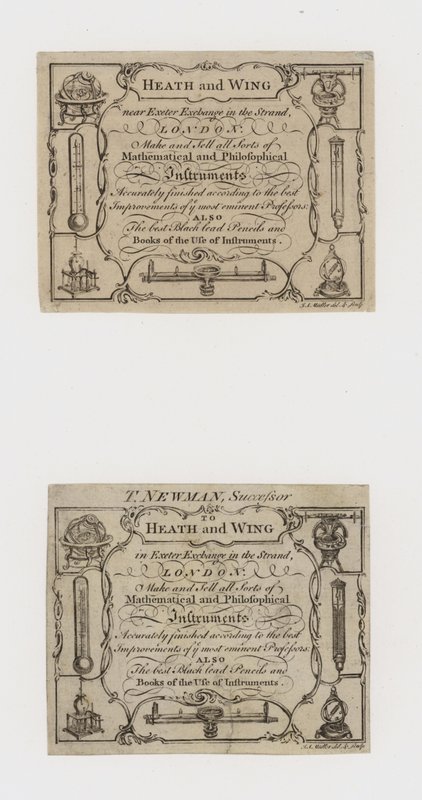 HEATH and WING
near Exeter Exchange in the Strand,
LONDON:
Make and Sell all Sorts of
Mathematical and Philosophical
Inſtruments
Accurately finiſhed according to the beſt
Improvements of yͤ moſt eminent Profeſsors.
ALSO
The best Black lead Pencils and
Books of the Uſe of Inſtruments.
T. NEWMAN, Succeſsor
TO
HEATH and WING
in Exeter Exchange in the Strand,
LONDON:
Make and Sell all Sorts of
Mathematical and Philosophical
Inſtruments
Accurately finiſhed according to the beſt
Improvements of yͤ moſt eminent Profeſsors.
ALSO
The best Black lead Pencils and
Books of the Uſe of Inſtruments.